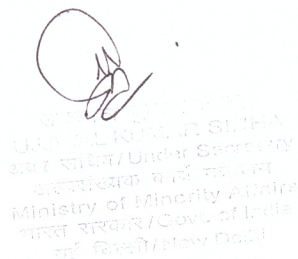 UJJWAL KUMAR SINHA
अवर सचिव/Under Secretary
अल्पसंख्यक कार्य मंत्रालय
Ministry of Minority Affairs
भारत सरकार/Govt. of India
नई दिल्ली/New Delhi